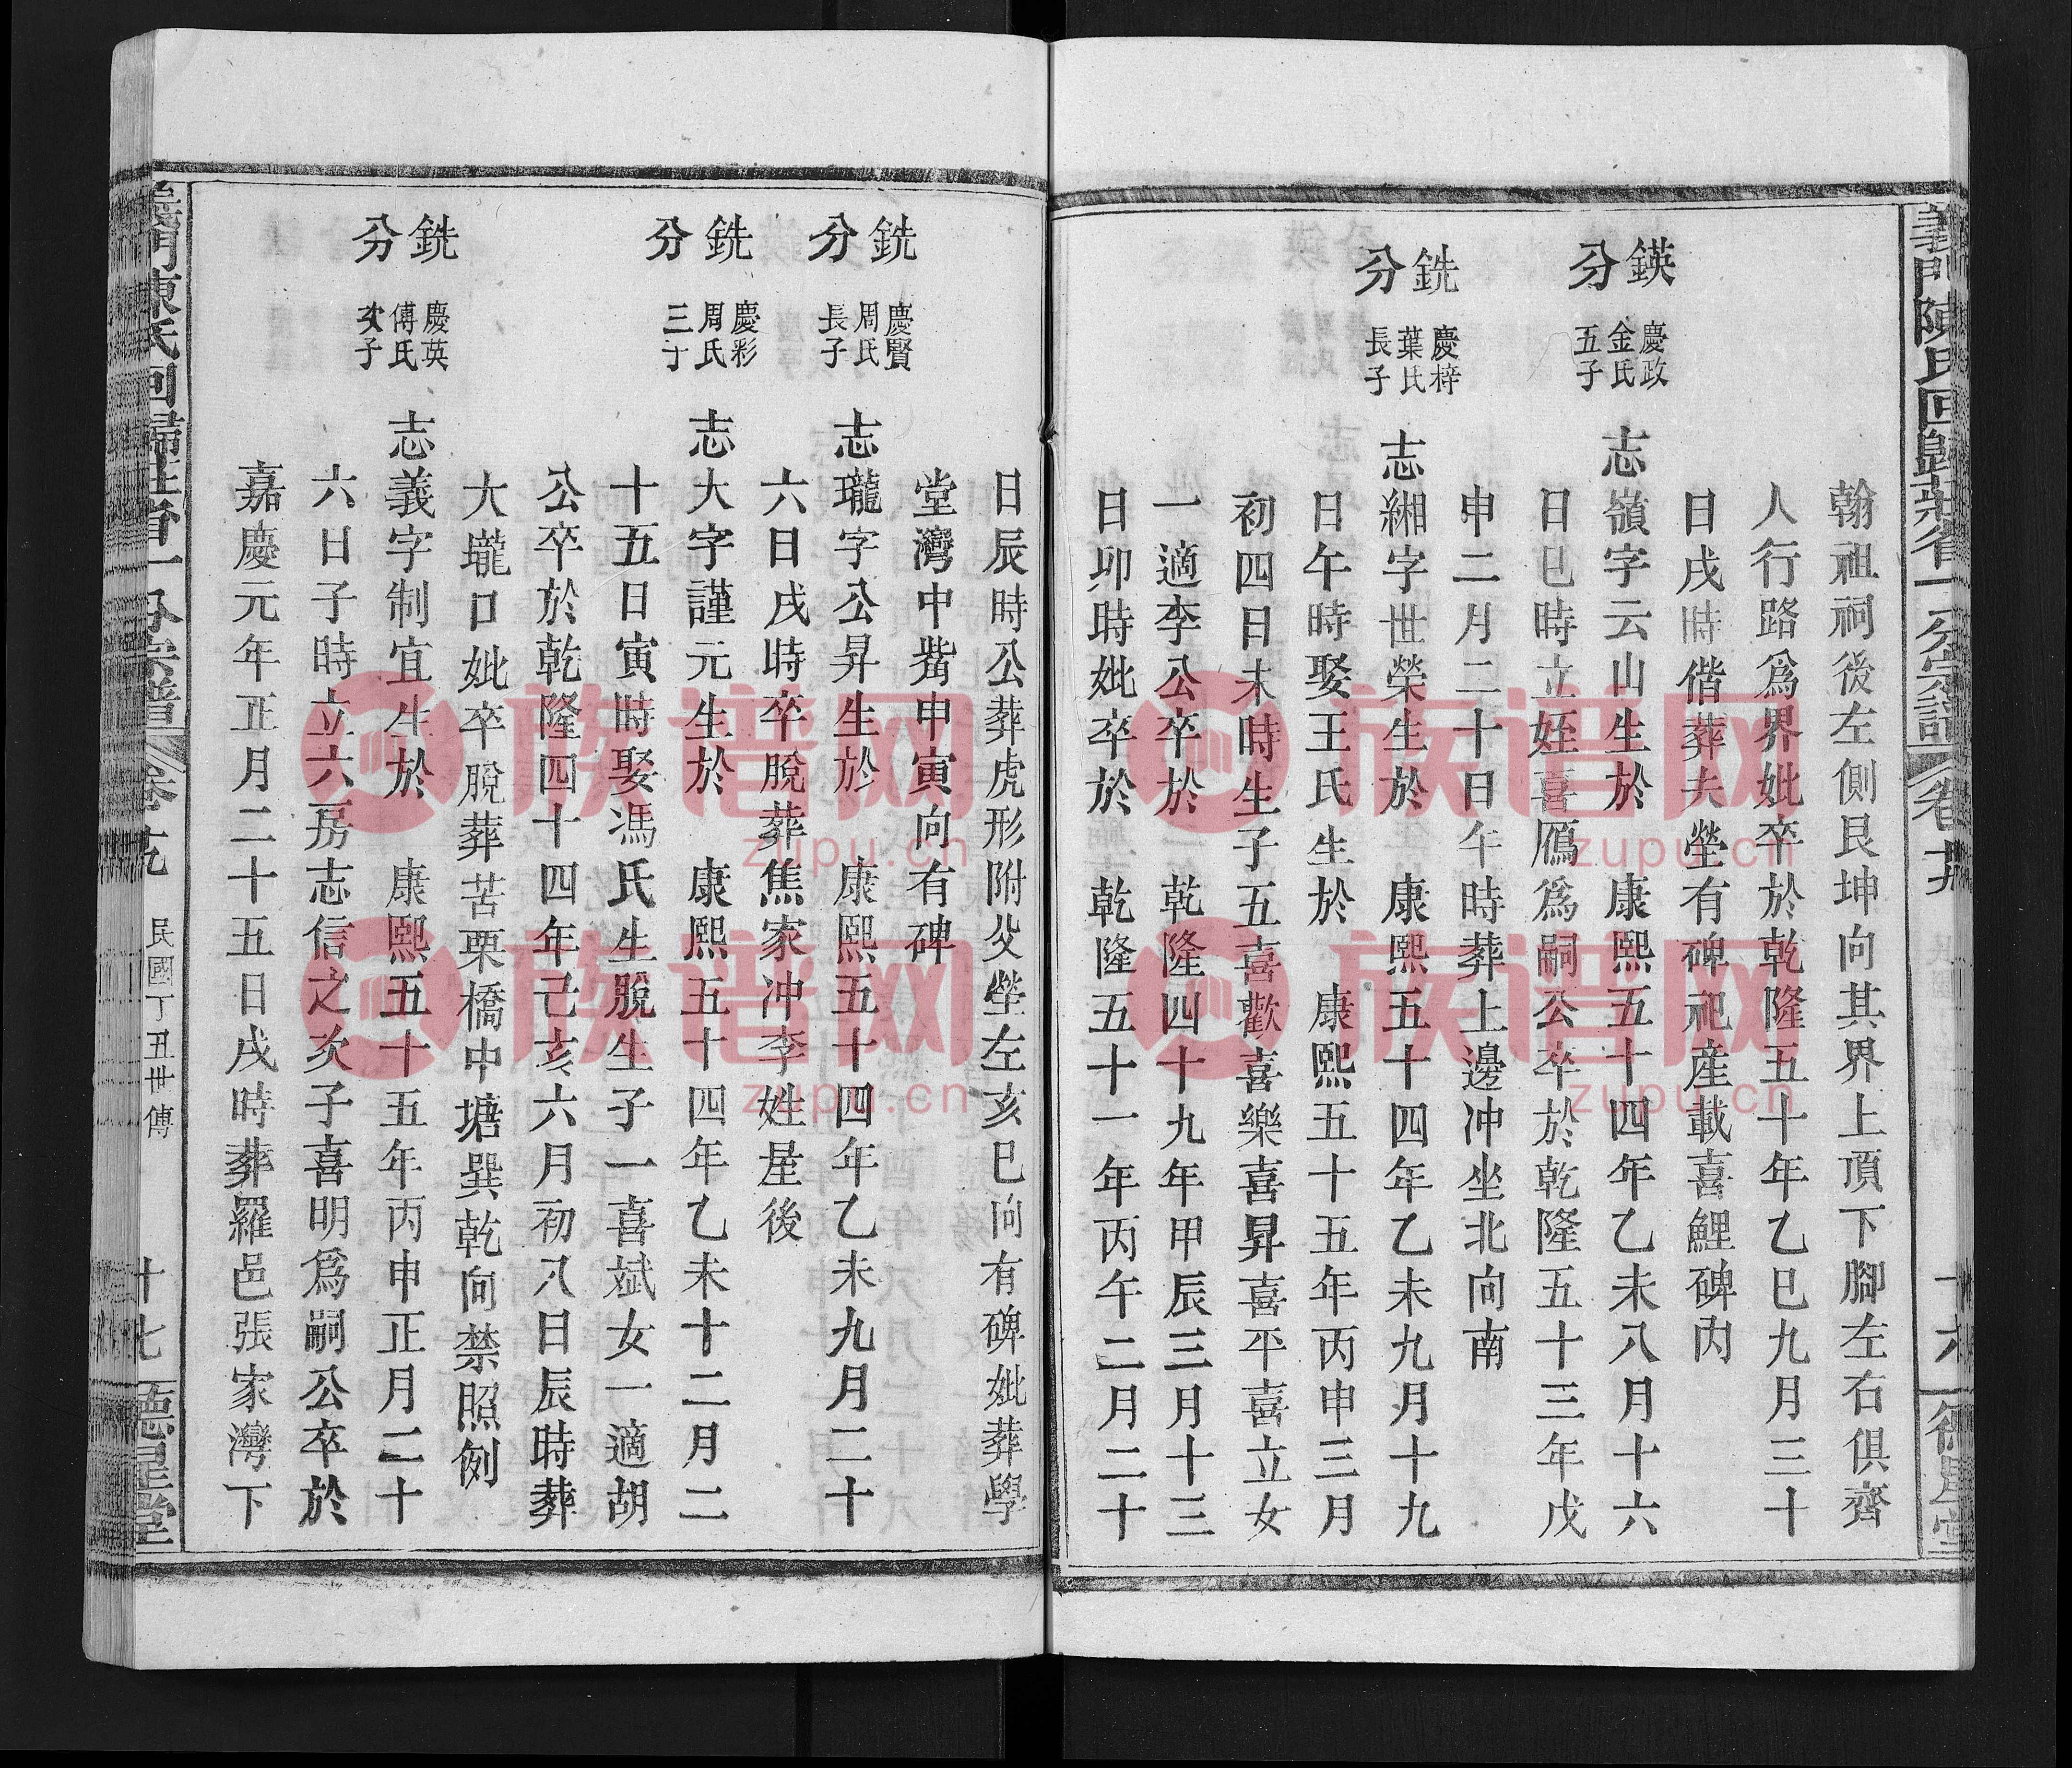 義門陳氏回歸莊省一分宗譜
翰祖祠後左側艮坤向其界上頂下腳左右俱齊
人行路爲界妣卒於乾隆五十年乙巳九月三十
日戌時偕葬夫塋有碑祀産載喜鯉碑內
鍈分
慶政
金氏
五子
志嶺字云山生於 康熙五十四年乙未八月十六
日巳時立姪喜鴈爲嗣公卒於乾隆五十三年戊
申二月二十日午時葬上邊冲坐北向南
銑分
慶梓
葉氏
長子
志緗字世榮生於 康熙五十四年乙未九月十九
日午時娶王氏生於 康熙五十五年丙申三月
初四日未時生子五喜歡喜樂喜昇喜平喜立女
一適李公卒於 乾隆四十九年甲辰三月十三
日卯時妣卒於 乾隆五十一年丙午二月二十
日辰時公葬虎形附父塋左亥巳向有碑妣葬學
堂灣中嘴申寅向有碑
銑分
慶賢
周氏
長子
志瓏字公昇生於 康熙五十四年乙未九月二十
六日戌時卒脫葬焦家冲李姓屋後
銑分
慶彩
周氏
三子
志大字謹元生於 康熙五十四年乙未十二月二
十五日寅時娶馮氏生脫生子一喜斌女一適胡
公卒於乾隆四十四年己亥六月初八日辰時葬
大壠口妣卒脫葬苦栗橋中塘巽乾向禁照例
銑分
慶英
傅氏
次子
志義字制宜生於 康熙五十五年丙申正月二十
六日子時立六房志信之次子喜明爲嗣公卒於
嘉慶元年正月二十五日戌時葬羅邑張家灣下
義門陳氏回歸莊省一分宗譜
民國丁丑世傳
十七
德星堂
族谱网
zupu.cn
族谱网
zupu.cn
族谱网
zupu.cn
族谱网
zupu.cn